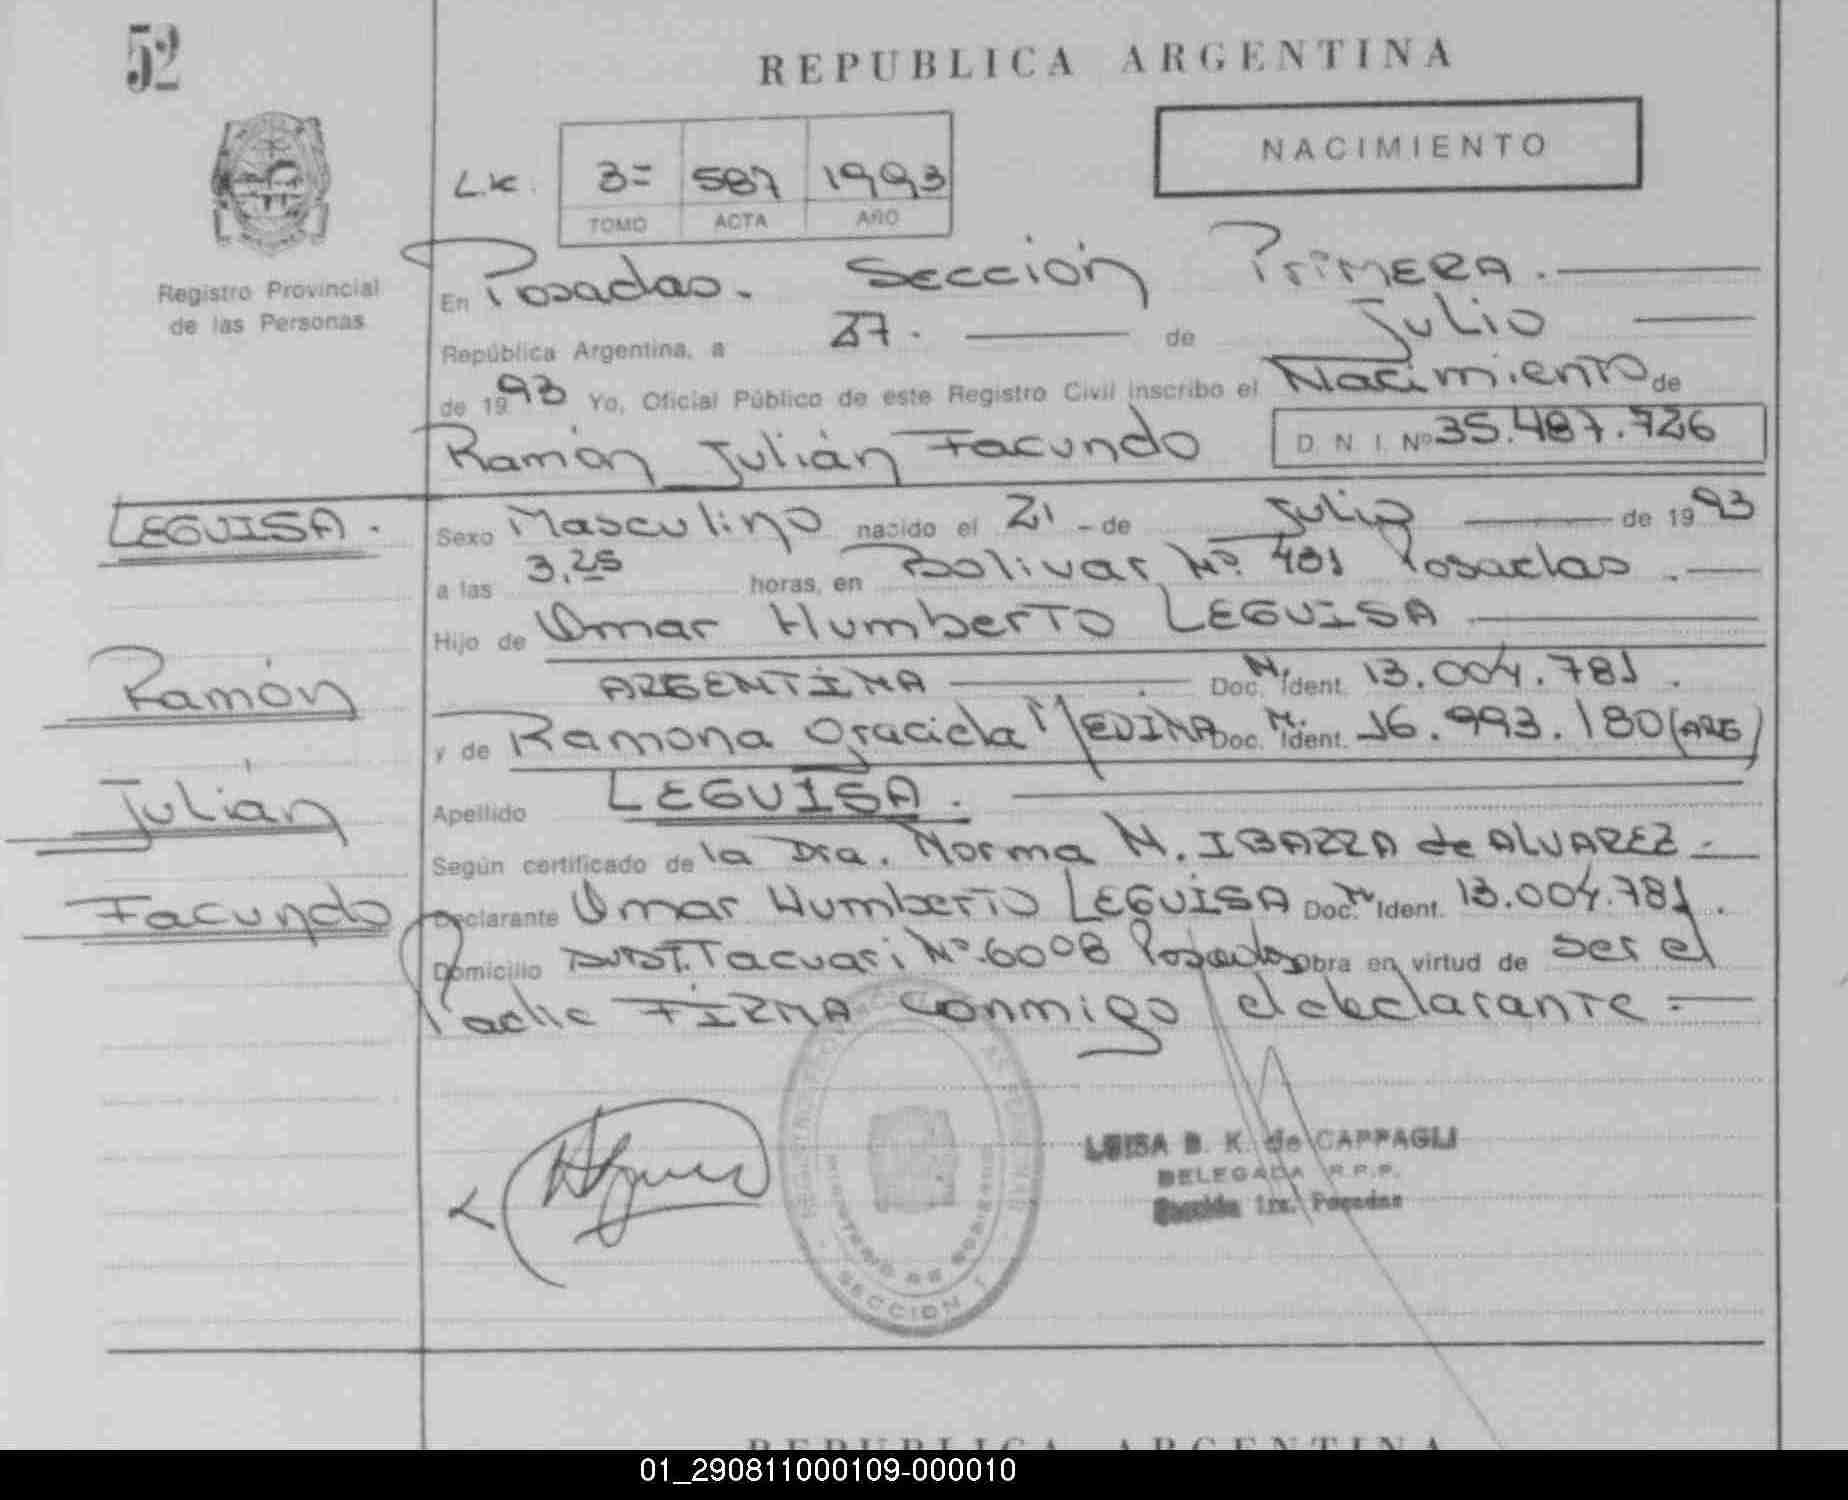 52
REPUBLICA ARGENTINA
NACIMIENTO
3= 587 1993
TOMO ACTA AÑO
Registro Provincial
de las Personas
En Posadas. Sección Primera.
República Argentina, a 27. de Julio
de 1993 Yo, Oficial Público de este Registro Civil inscribo el Nacimiento de
Ramón Julián Facundo D N I. Nº 35.487.726
LEGUISA.
Sexo Masculino nacido el 21 - de Julio de 1993
a las 3,25 horas, en Bolivar Nº. 481 Posadas.
Hijo de Omar Humberto LEGUISA
ARGENTINA Doc. N. Ident. 13.004.781.
Ramón
y de Ramona Graciela MEDINA Doc. N. Ident. 16.993.180 (ARG)
Julián
Apellido LEGUISA.
Según certificado de la Dra. Norma N. IBARRA de ALVAREZ
Facundo
Declarante Omar Humberto LEGUISA Doc. N Ident. 13.004.781.
Domicilio Tacuari Nº 6008 Posadas Obra en virtud de ser el
Padre FIRMA conmigo el declarante
LUISA B. K. de CAPPAGLI
DELEGADA R.P.P.
Sección 1ra. Posadas
MINISTERIO DE GOBIERNO
SECCION 1
REPUBLICA ARGENTINA
01_290811000109-000010